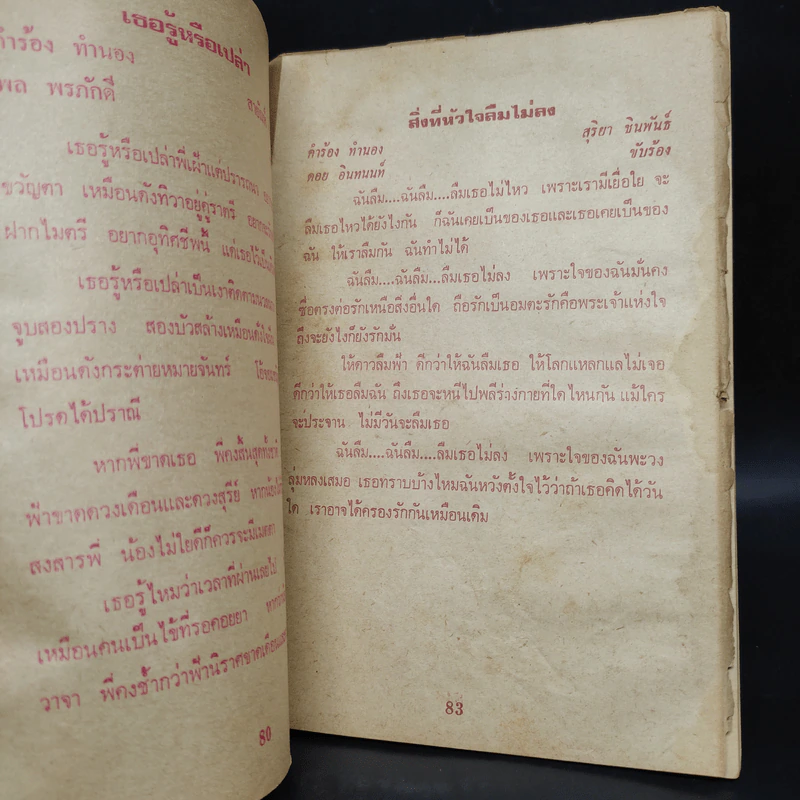 เธอรู้หรือเปล่า
คำร้อง ทำนอง
พล พรภักดี
สายัณห์
เธอรู้หรือเปล่าพี่เฝ้าแต่ปรารถนา
ขวัญตา เหมือนดังทิวาอยู่คู่ราตรี
ฝากไมตรี อยากอุทิศชีพนี้ แต่เธอ
เธอรู้หรือเปล่าเป็นเงาติดตาม
จูบสองปราง สองบัวสล้างเหมือนดัง
เหมือนดังกระต่ายหมายจันทร์
โปรดได้ปราณี
หากพี่ขาดเธอ พี่คงสิ้นสุด
ฟ้าขาดดวงเดือนและดวงสุรีย์
สงสารพี่ น้องไม่ใยดีก็ควรจะมีเมตตา
เธอรู้ไหมว่าเวลาที่ผ่านเลยไป
เหมือนคนเป็นไข้ที่รอคอยยา
วาจา พี่คงช้ำกว่าฟ้านิราศขาดเดือน
80
สิ่งที่หัวใจลืมไม่ลง
คำร้อง ทำนอง สุริยา ชินพันธ์
ดอย อินทนนท์ ขับร้อง
ฉันลืม....ฉันลืม....ลืมเธอไม่ไหว เพราะเรามีเยื่อใย จะ
ลืมเธอไหวได้ยังไงกัน ก็ฉันเคยเป็นของเธอและเธอเคยเป็นของ
ฉัน ให้เราลืมกัน ฉันทำไม่ได้
ฉันลืม....ฉันลืม....ลืมเธอไม่ลง เพราะใจของฉันมั่นคง
ซื่อตรงต่อรักเหนือสิ่งอื่นใด ถือรักเป็นอมตะรักคือพระเจ้าแห่งใจ
ถึงจะยังไงก็ยังรักมั่น
ให้ดาวลืมฟ้า ดีกว่าให้ฉันลืมเธอ ให้โลกแหลกแลไม่เจอ
ดีกว่าให้เธอลืมฉัน ถึงเธอจะหนีไปพลีร่างกายที่ใดไหนกัน แม้ใคร
จะประจาน ไม่มีวันจะลืมเธอ
ฉันลืม....ฉันลืม....ลืมเธอไม่ลง เพราะใจของฉันพะวง
ลุ่มหลงเสมอ เธอทราบบ้างไหมฉันหวังตั้งใจไว้ว่าถ้าเธอคิดได้วัน
ใด เราอาจได้ครองรักกันเหมือนเดิม
83